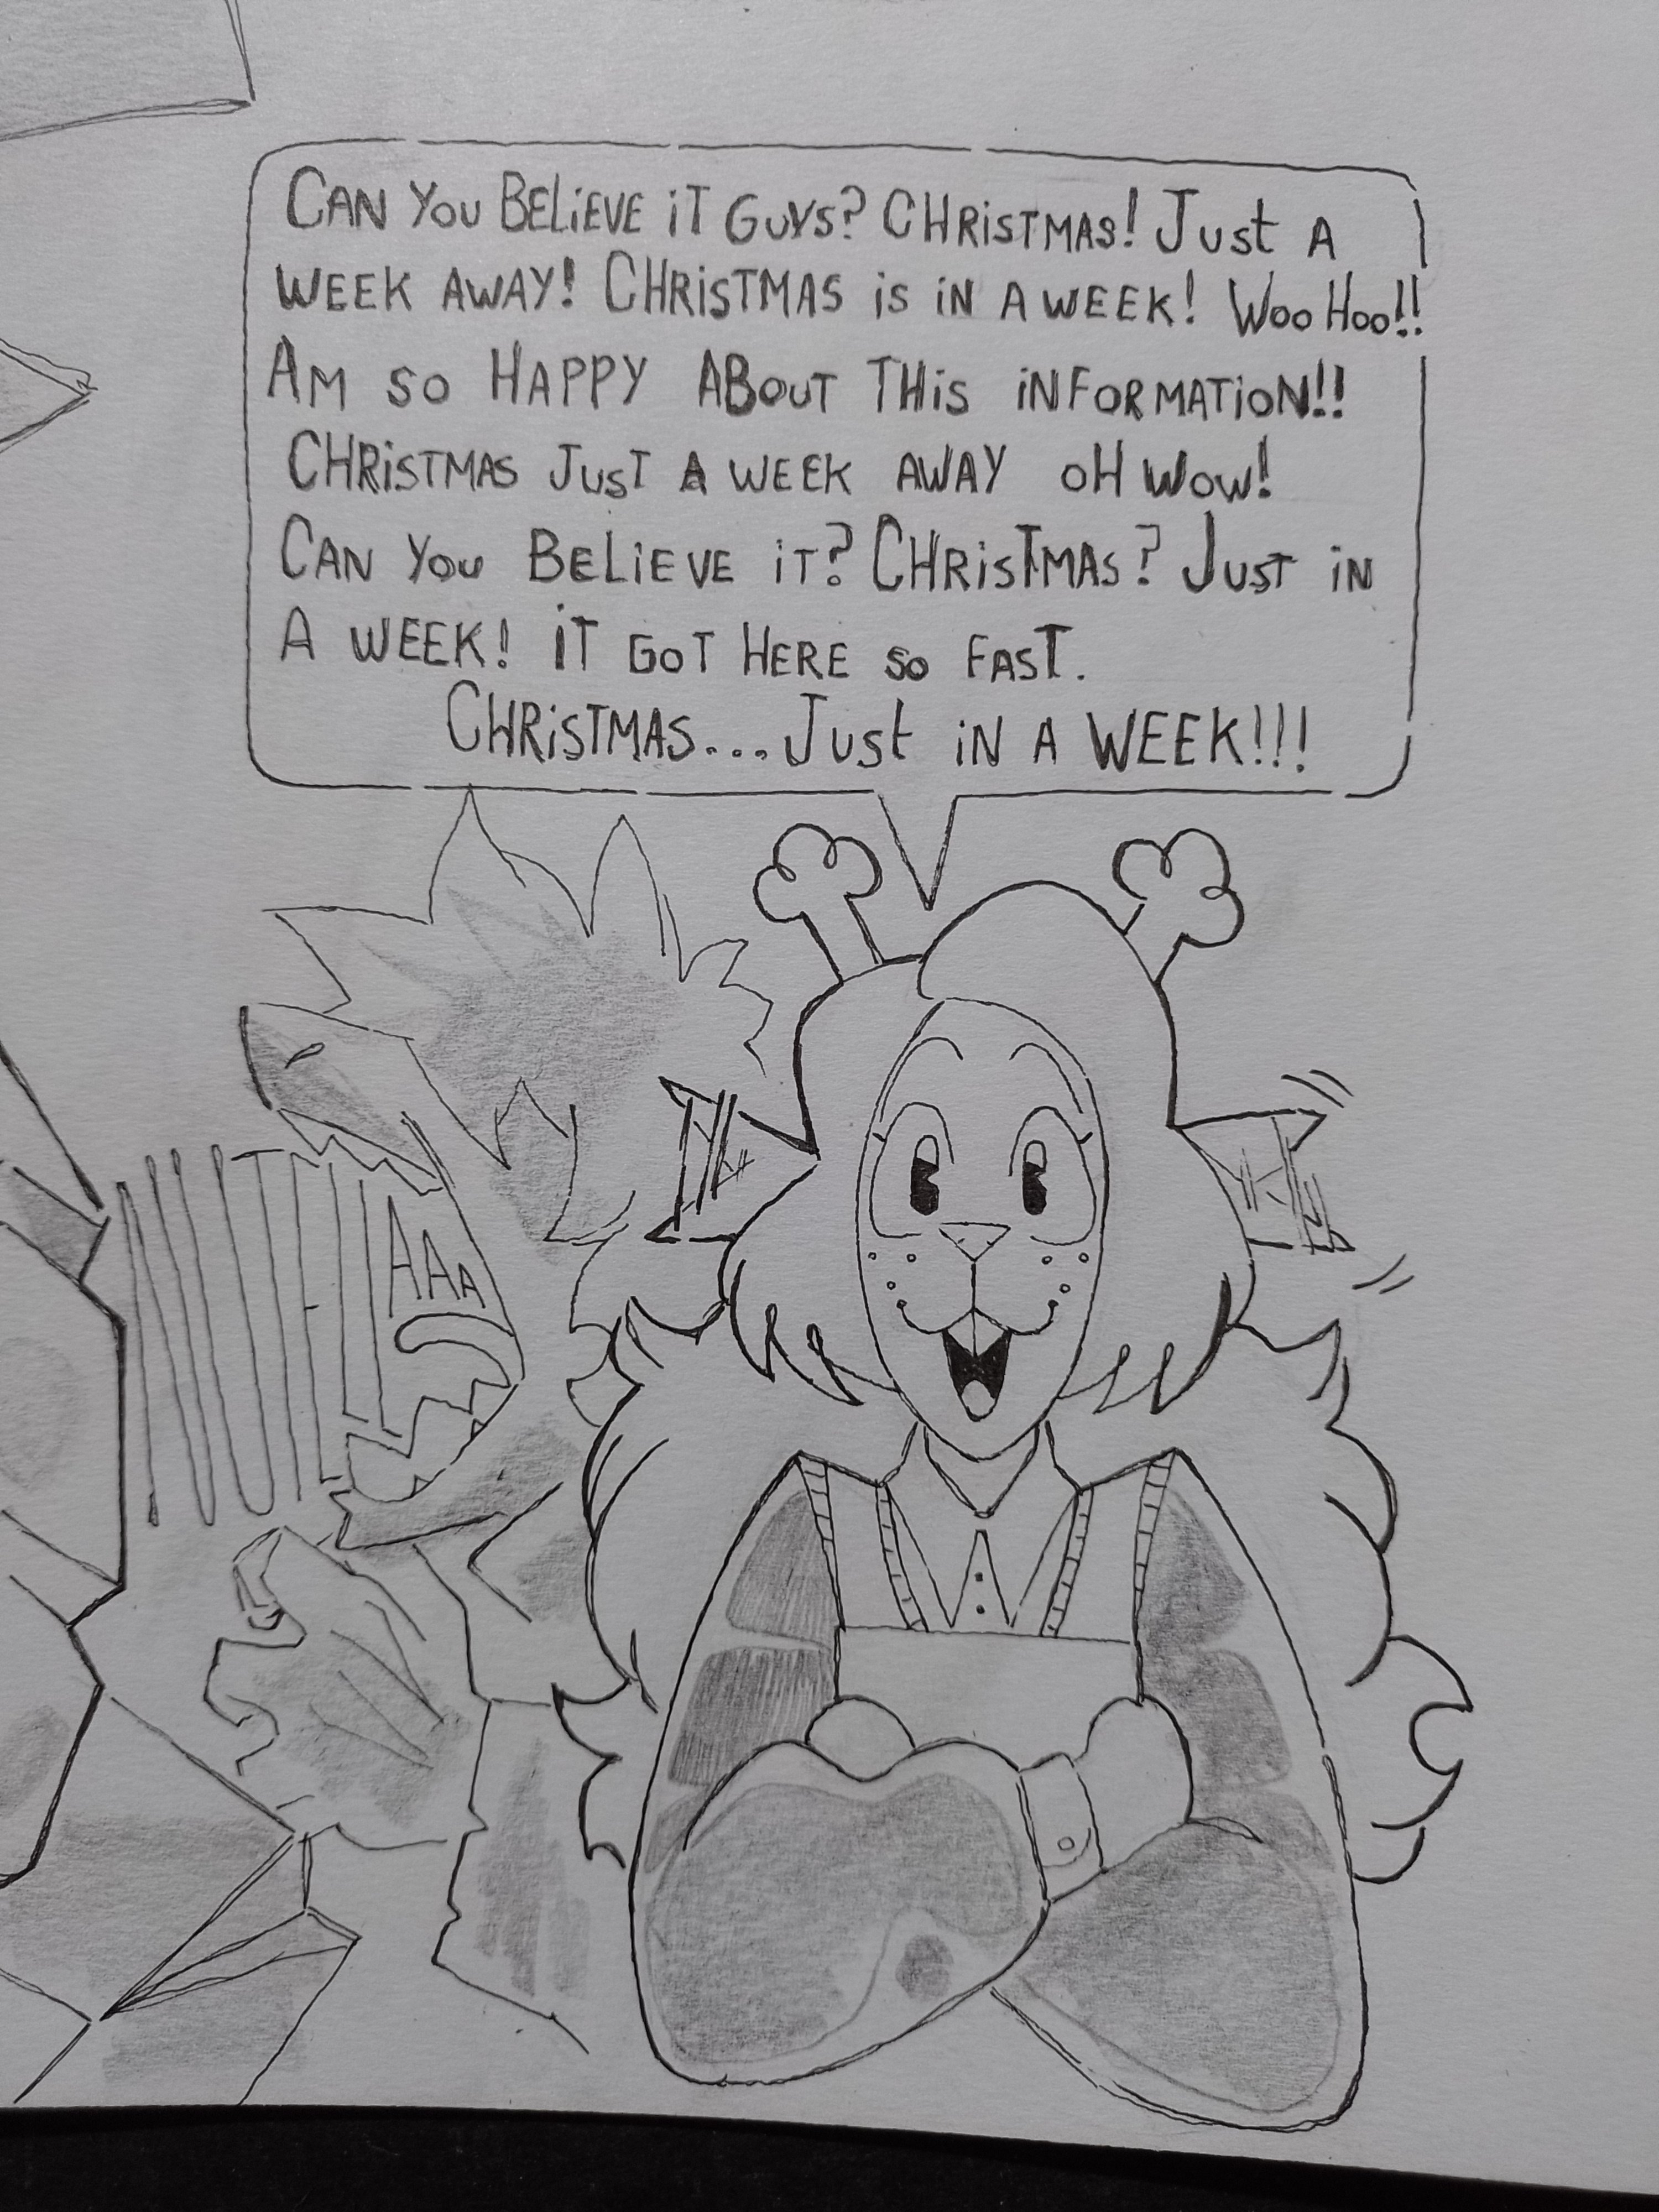 CAN YOU BELiEVE iT GUYS? CHRiSTMAS! JUSt A
WEEK AWAY! CHRiSTMAS iS iN A WEEK! WOO HOO!!
AM SO HAPPY ABOUT THiS iNFORMATiON!!
CHRiSTMAS JUST A WEEK AWAY OH WOW!
CAN YOU BELiEVE iT? CHRiSTMAS? JUST iN
A WEEK! iT GOT HERE SO FAST.
CHRiSTMAS... JUSt iN A WEEK!!!
AAA